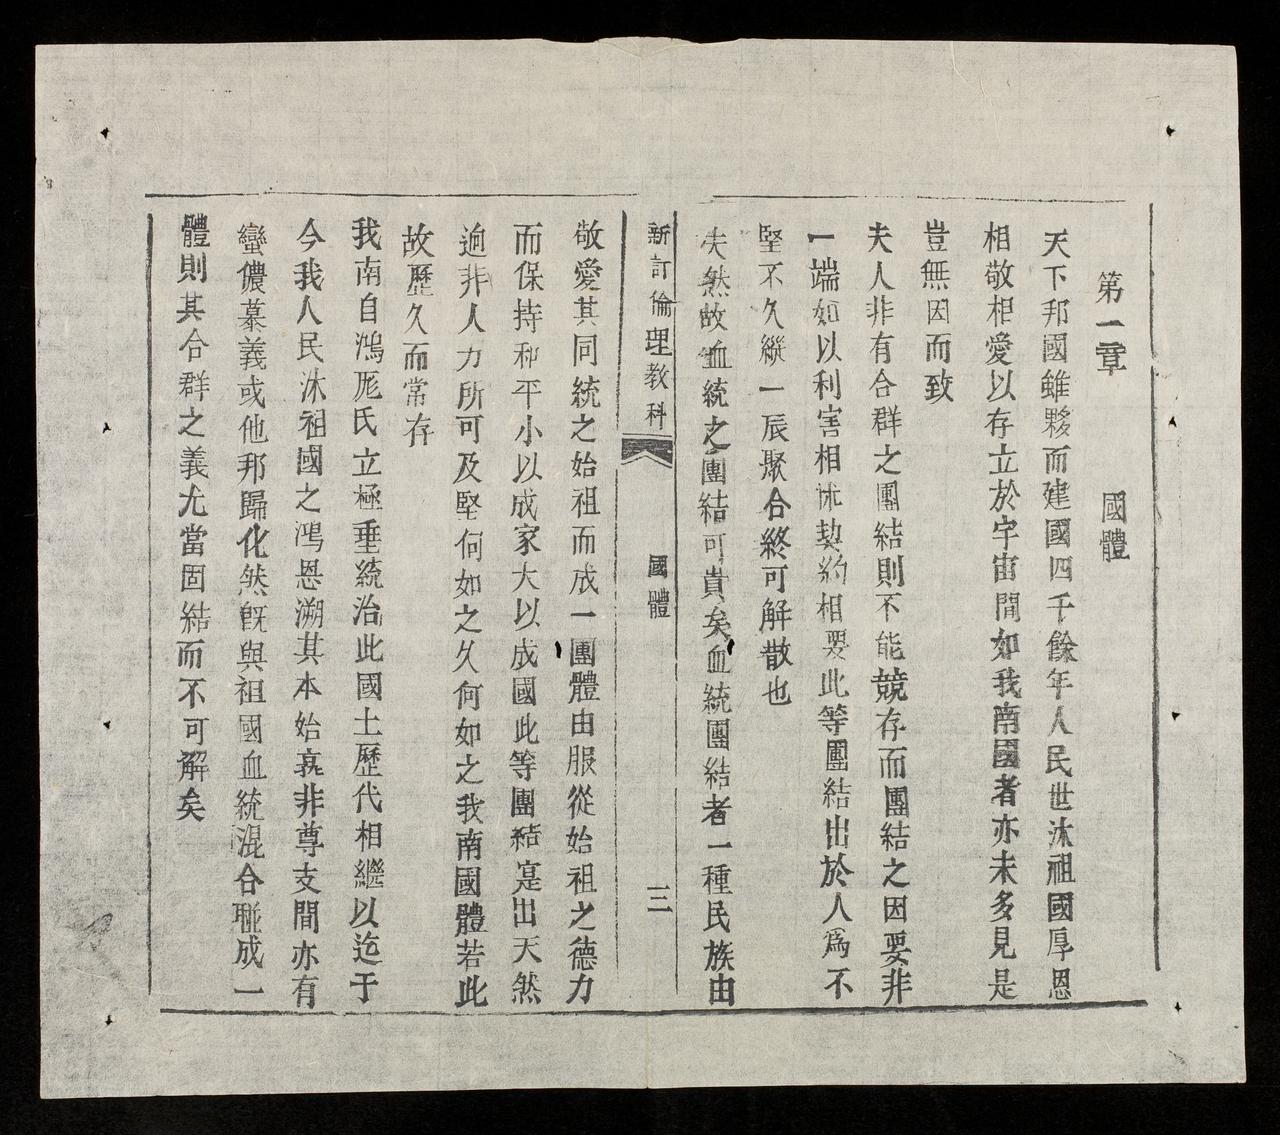 第一章 國體
天下邦國雖夥而建國四千餘年人民世沐祖國厚恩
相敬相愛以存立於宇宙間如我南國者亦未多見是
豈無因而致
夫人非有合群之團結則不能競存而團結之因要非
一端如以利害相怵契約相要此等團結出於人爲不
堅不久縱一辰聚合終可解散也
夫然故血統之團結可貴矣血統團結者一種民族由
新訂倫理教科 國體 三
敬愛其同統之始祖而成一團體由服從始祖之德力
而保持和平小以成家大以成國此等團結寔出天然
逈非人力所可及堅何如之久何如之我南國體若此
故歷久而常存
我南自鴻厖氏立極垂統治此國土歷代相繼以迄于
今我人民沐祖國之鴻恩溯其本始孰非尊支間亦有
蠻儂慕義或他邦歸化然旣與祖國血統混合碰成一
體則其合群之義尤當固結而不可解矣